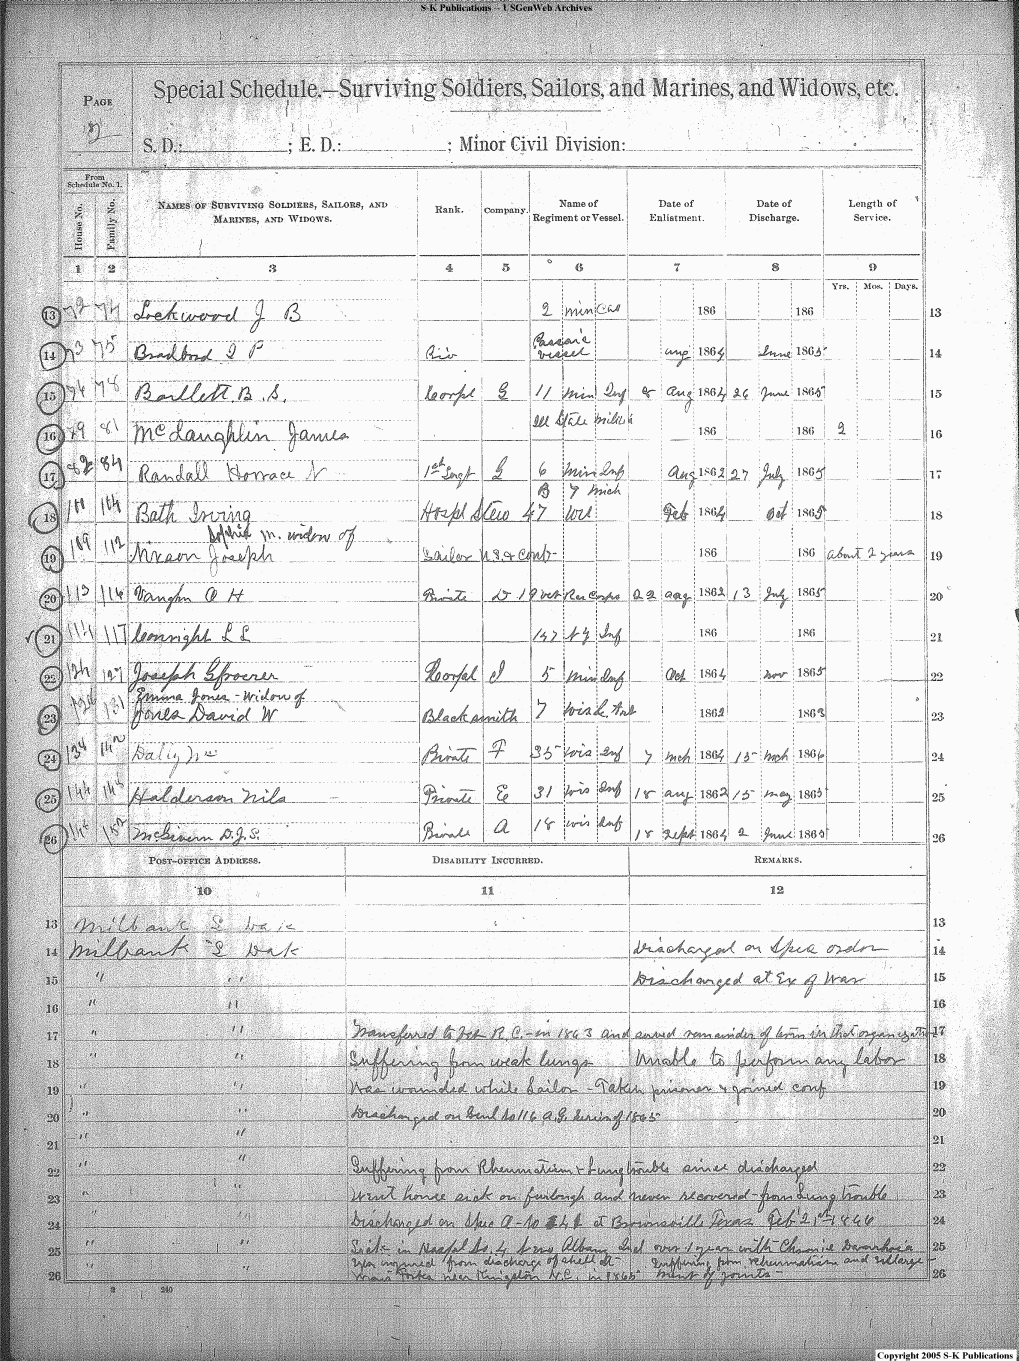 S-K Publications -- USGenWeb Archives
PAGE
2
Special Schedule.—Surviving Soldiers, Sailors, and Marines, and Widows, etc.
S. D.: ; E. D.: ; Minor Civil Division:
From Schedule No. 1.
House No. Family No. NAMES OF SURVIVING SOLDIERS, SAILORS, AND MARINES, AND WIDOWS. Rank. Company. Name of Regiment or Vessel. Date of Enlistment. Date of Discharge. Length of Service.
1 2 3 4 5 6 7 8 9
Yrs. Mos. Days.
13 72 74 Lockwood J B 2 Min Cal 186 186 13
14 73 75 Bradford I P Priv Passaic vessel Aug 1864 June 1865 14
15 76 78 Bartlett B. S. Corpl G 11 Min Inf 8 Aug 1864 26 June 1865 15
16 81 McLaughlin James Ill State Militia 186 186 2 16
17 82 84 Randall Horrace N 1st Sergt G 6 Min Inf Aug 1862 27 July 1865 17
B 7 Mich
18 104 Bath Irving Hospl Stew 47 Wis Feb 1864 Oct 1865 18
Sophia M. widow of
19 109 112 Nixson Joseph Sailor U.S. & Conf- 186 186 about 2 years 19
20 113 116 Vaughn A H Private D 19 Vet Res Corps 22 Aug 1862 13 July 1865 20
21 114 117 L L 147 N Y Inf 186 186 21
22 124 127 Joseph Corpl I 5 Min Inf Oct 1864 Nov 1865 22
Emma Jones - Widow of
23 128 131 Jones David W Blacksmith 7 Wis L. Art 1862 1863 23
24 134 142 Dally Private F 35 Wis Inf 7 Mch 1864 15 Mch 1866 24
25 144 Halderson Nils Private E 31 Wis Inf 18 Aug 1862 15 May 1865 25
26 146 152 McGivern D.J.S. Private A 18 Wis Inf 18 Sept 1864 2 June 1865 26
POST-OFFICE ADDRESS. DISABILITY INCURRED. REMARKS.
10 11 12
13 Milbank S Dak 13
14 Milbank S Dak Discharged on Spec order 14
15 " " Discharged at Ex of War 15
16 " " 16
17 " " Transferred to Vet R. C. - in 1863 and served remainder of term in that organization 17
18 " " Suffering from weak lungs Unable to perform any labor 18
19 " " Was wounded while Sailor - Taken prisoner & joined conf 19
20 " " Discharged on Genl No 116 A.G. Series of 1865 20
21 " " 21
22 " " Suffering from Rheumatism & Lung trouble since discharged 22
23 " " Went home sick on furlough and never recovered - from Lung trouble 23
24 " " Discharged on Spec at Brownsville Texas Feb 21st 1866 24
25 " " Sick in Hospl No. 4 New Albany Ind over 1 year with Chronic Diarrhoea 25
injured from discharge of shell at Suffering from rheumatism and enlarge-
26 Wises Forks near Kingston N.C. in 1865 ment of joints - 26
2 240
Copyright 2005 S-K Publications